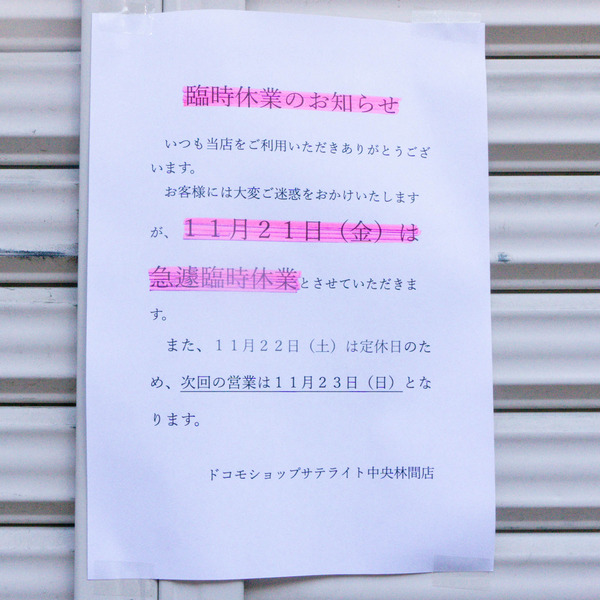 臨時休業のお知らせ
いつも当店をご利用いただきありがとうござ
います。
お客様には大変ご迷惑をおかけいたします
が、１１月２１日（金）は
急遽臨時休業とさせていただきま
す。
また、１１月２２日（土）は定休日のた
め、次回の営業は１１月２３日（日）とな
ります。
ドコモショップサテライト中央林間店